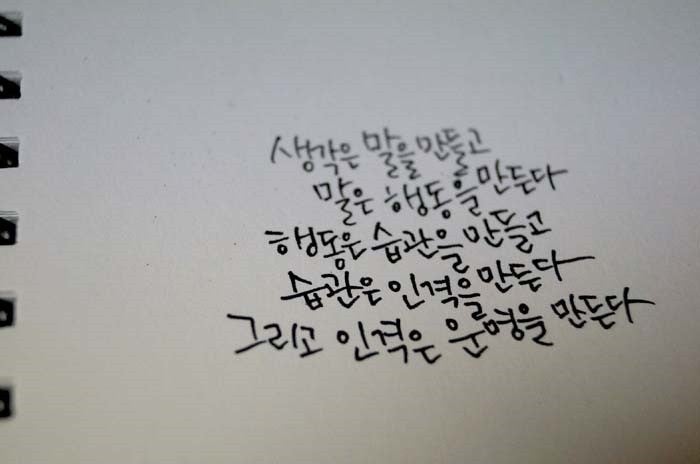 생각은 말을 만들고
말은 행동을 만든다
행동은 습관을 만들고
습관은 인격을 만든다
그리고 인격은 운명을 만든다